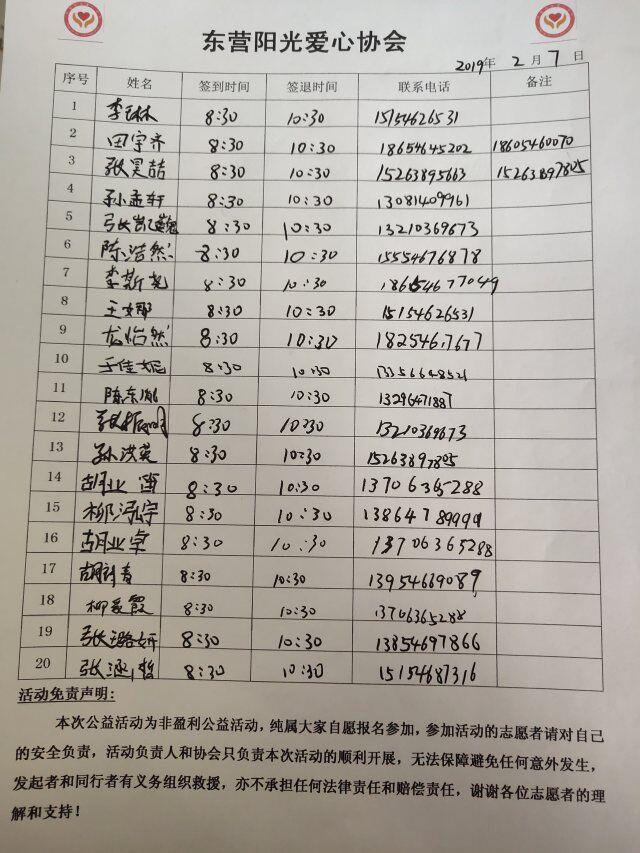 东营阳光爱心协会
2019年 2月7日
序号 姓名 签到时间 签退时间 联系电话 备注
1 李琳 8:30 10:30 15154626531
2 田宇齐 8:30 10:30 18654645202 18605460070
3 张昊喆 8:30 10:30 15263895663 15263897805
4 孙孟轩 8:30 10:30 13081409961
5 8:30 10:30 13210369673
6 陈浩然 8:30 10:30 15554676878
7 李斯尧 8:30 10:30 18654677049
8 王娜 8:30 10:30 15154626531
9 尤怡然 8:30 10:30 18254617677
10 于佳妮 8:30 10:30 13356648521
11 陈东胤 8:30 10:30
12 8:30 10:30 13210369673
13 孙洪英 8:30 10:30 15263897805
14 胡业 8:30 10:30 13706365288
15 柳泓宇 8:30 10:30 13864789999
16 胡业卓 8:30 10:30 13706365288
17 8:30 10:30 13954669089
18 柳爱霞 8:30 10:30 13706365288
19 张潞妍 8:30 10:30 13854697866
20 张涵哲 8:30 10:30 15154687316
活动免责声明:
本次公益活动为非盈利公益活动，纯属大家自愿报名参加，参加活动的志愿者请对自己
的安全负责，活动负责人和协会只负责本次活动的顺利开展，无法保障避免任何意外发生，
发起者和同行者有义务组织救援，亦不承担任何法律责任和赔偿责任，谢谢各位志愿者的理
解和支持！